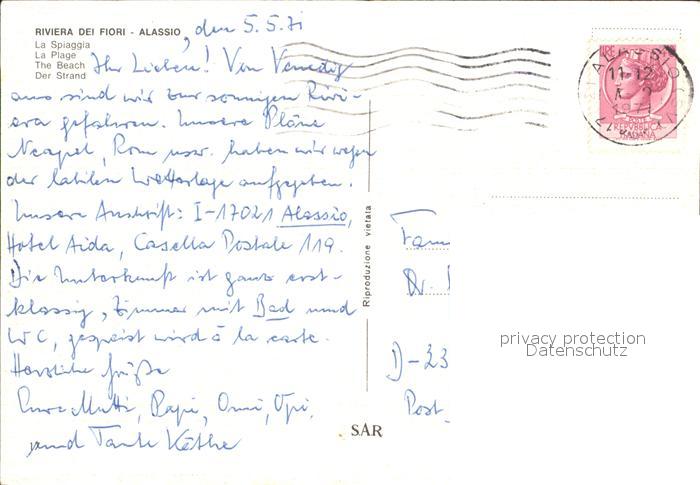 RIVIERA DEI FIORI - ALASSIO, den 5.5.71
La Spiaggia
La Plage
The Beach
Der Strand
Ihr Lieben! Von Venedig
aus sind wir zur sonnigen Rivi-
era gefahren. Unsere Pläne
Neapel, Rom usw. haben wir wegen
der labilen Wetterlage aufgegeben.
Unsere Anschrift: I-17021 Alassio,
Hotel Aida, Casella Postale 119.
Die Unterkunft ist ganz erst-
klassig, Zimmer mit Bad und
WC, gespeist wird à la carte.
Herzliche Grüße
Eure Mutti, Papi, Omi, Opi,
und Tante Käthe
Riproduzione vietata
SAR
ALASSIO
11-12
1971
LIRE
POSTE
REPVBBLICA
ITALIANA
Fam
Dr.
D-23
Post
privacy protection
Datenschutz